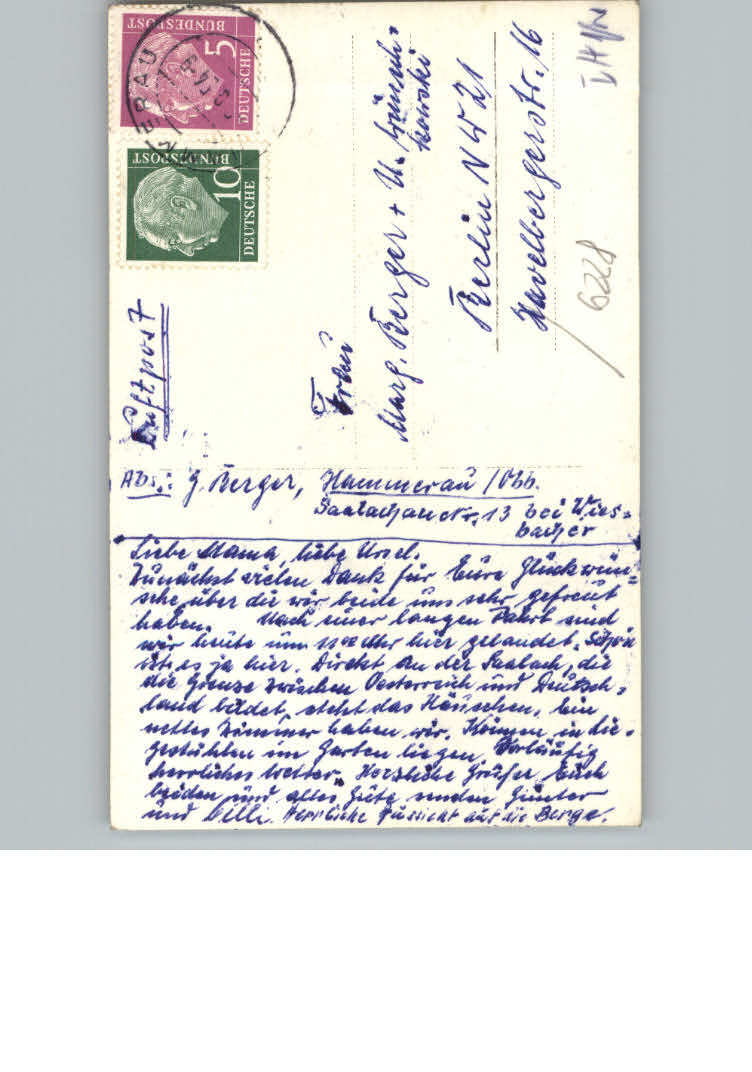 DEUTSCHE
BUNDESPOST
5
DEUTSCHE
BUNDESPOST
10
Luftpost
Frau
Marg. Berger + U.
Berlin NW 21
Havelbergerstr. 16
6228
Abs.: G. Berger, Hammerau / Obb.
Saalachau Nr. 13 bei Wies-
bacher
Liebe Mama, liebe Ursel.
Zunächst vielen Dank für Eure Glückwün-
sche über die wir beide uns sehr gefreut
haben. Nach einer langen Fahrt sind
wir heute um 11 00 Uhr hier gelandet. Schön
ist es ja hier. Direkt an der Saalach, die
die Grenze zwischen Oesterreich und Deutsch-
land bildet, steht das Häuschen. Ein
nettes Zimmer haben wir. Können in Lie-
gestühlen im Garten liegen. Vorläufig
herrliches Wetter. Herzliche Grüße Euch
beiden und alles Gute senden Günter
und Cilli. Herrliche Aussicht auf die Berge.